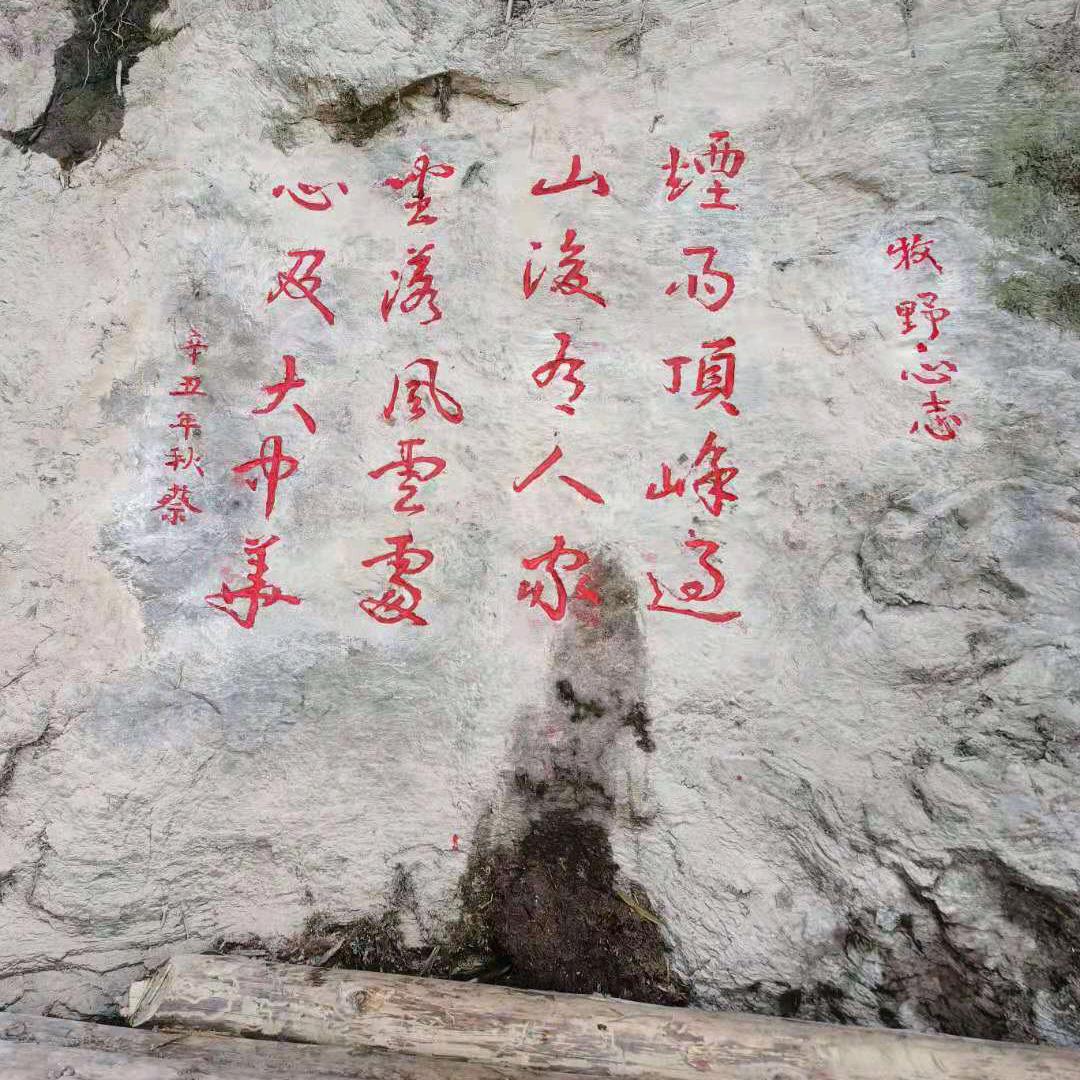 牧野心志
煙雨頂峰過
山後有人家
雲落風雲處
心及大中華
辛丑年秋蔡